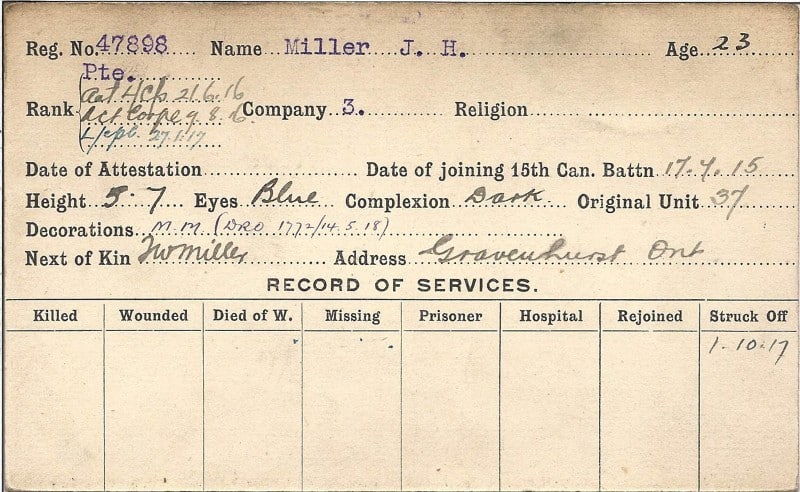 Reg. No. 47898 Name Miller J. H. Age 23
Pte.
Act L/Cp 21.6.16
Rank Act Corpl 9.8.16 Company 3. Religion
L/cpl. 27.1.17
Date of Attestation Date of joining 15th Can. Battn 17.7.15
Height 5.7 Eyes Blue Complexion Dark Original Unit 37
Decorations M.M. (DRO 1772/14.5.18)
Next of Kin Miller Address Gravenhurst Ont
RECORD OF SERVICES.
Killed Wounded Died of W. Missing Prisoner Hospital Rejoined Struck Off
1.10.17